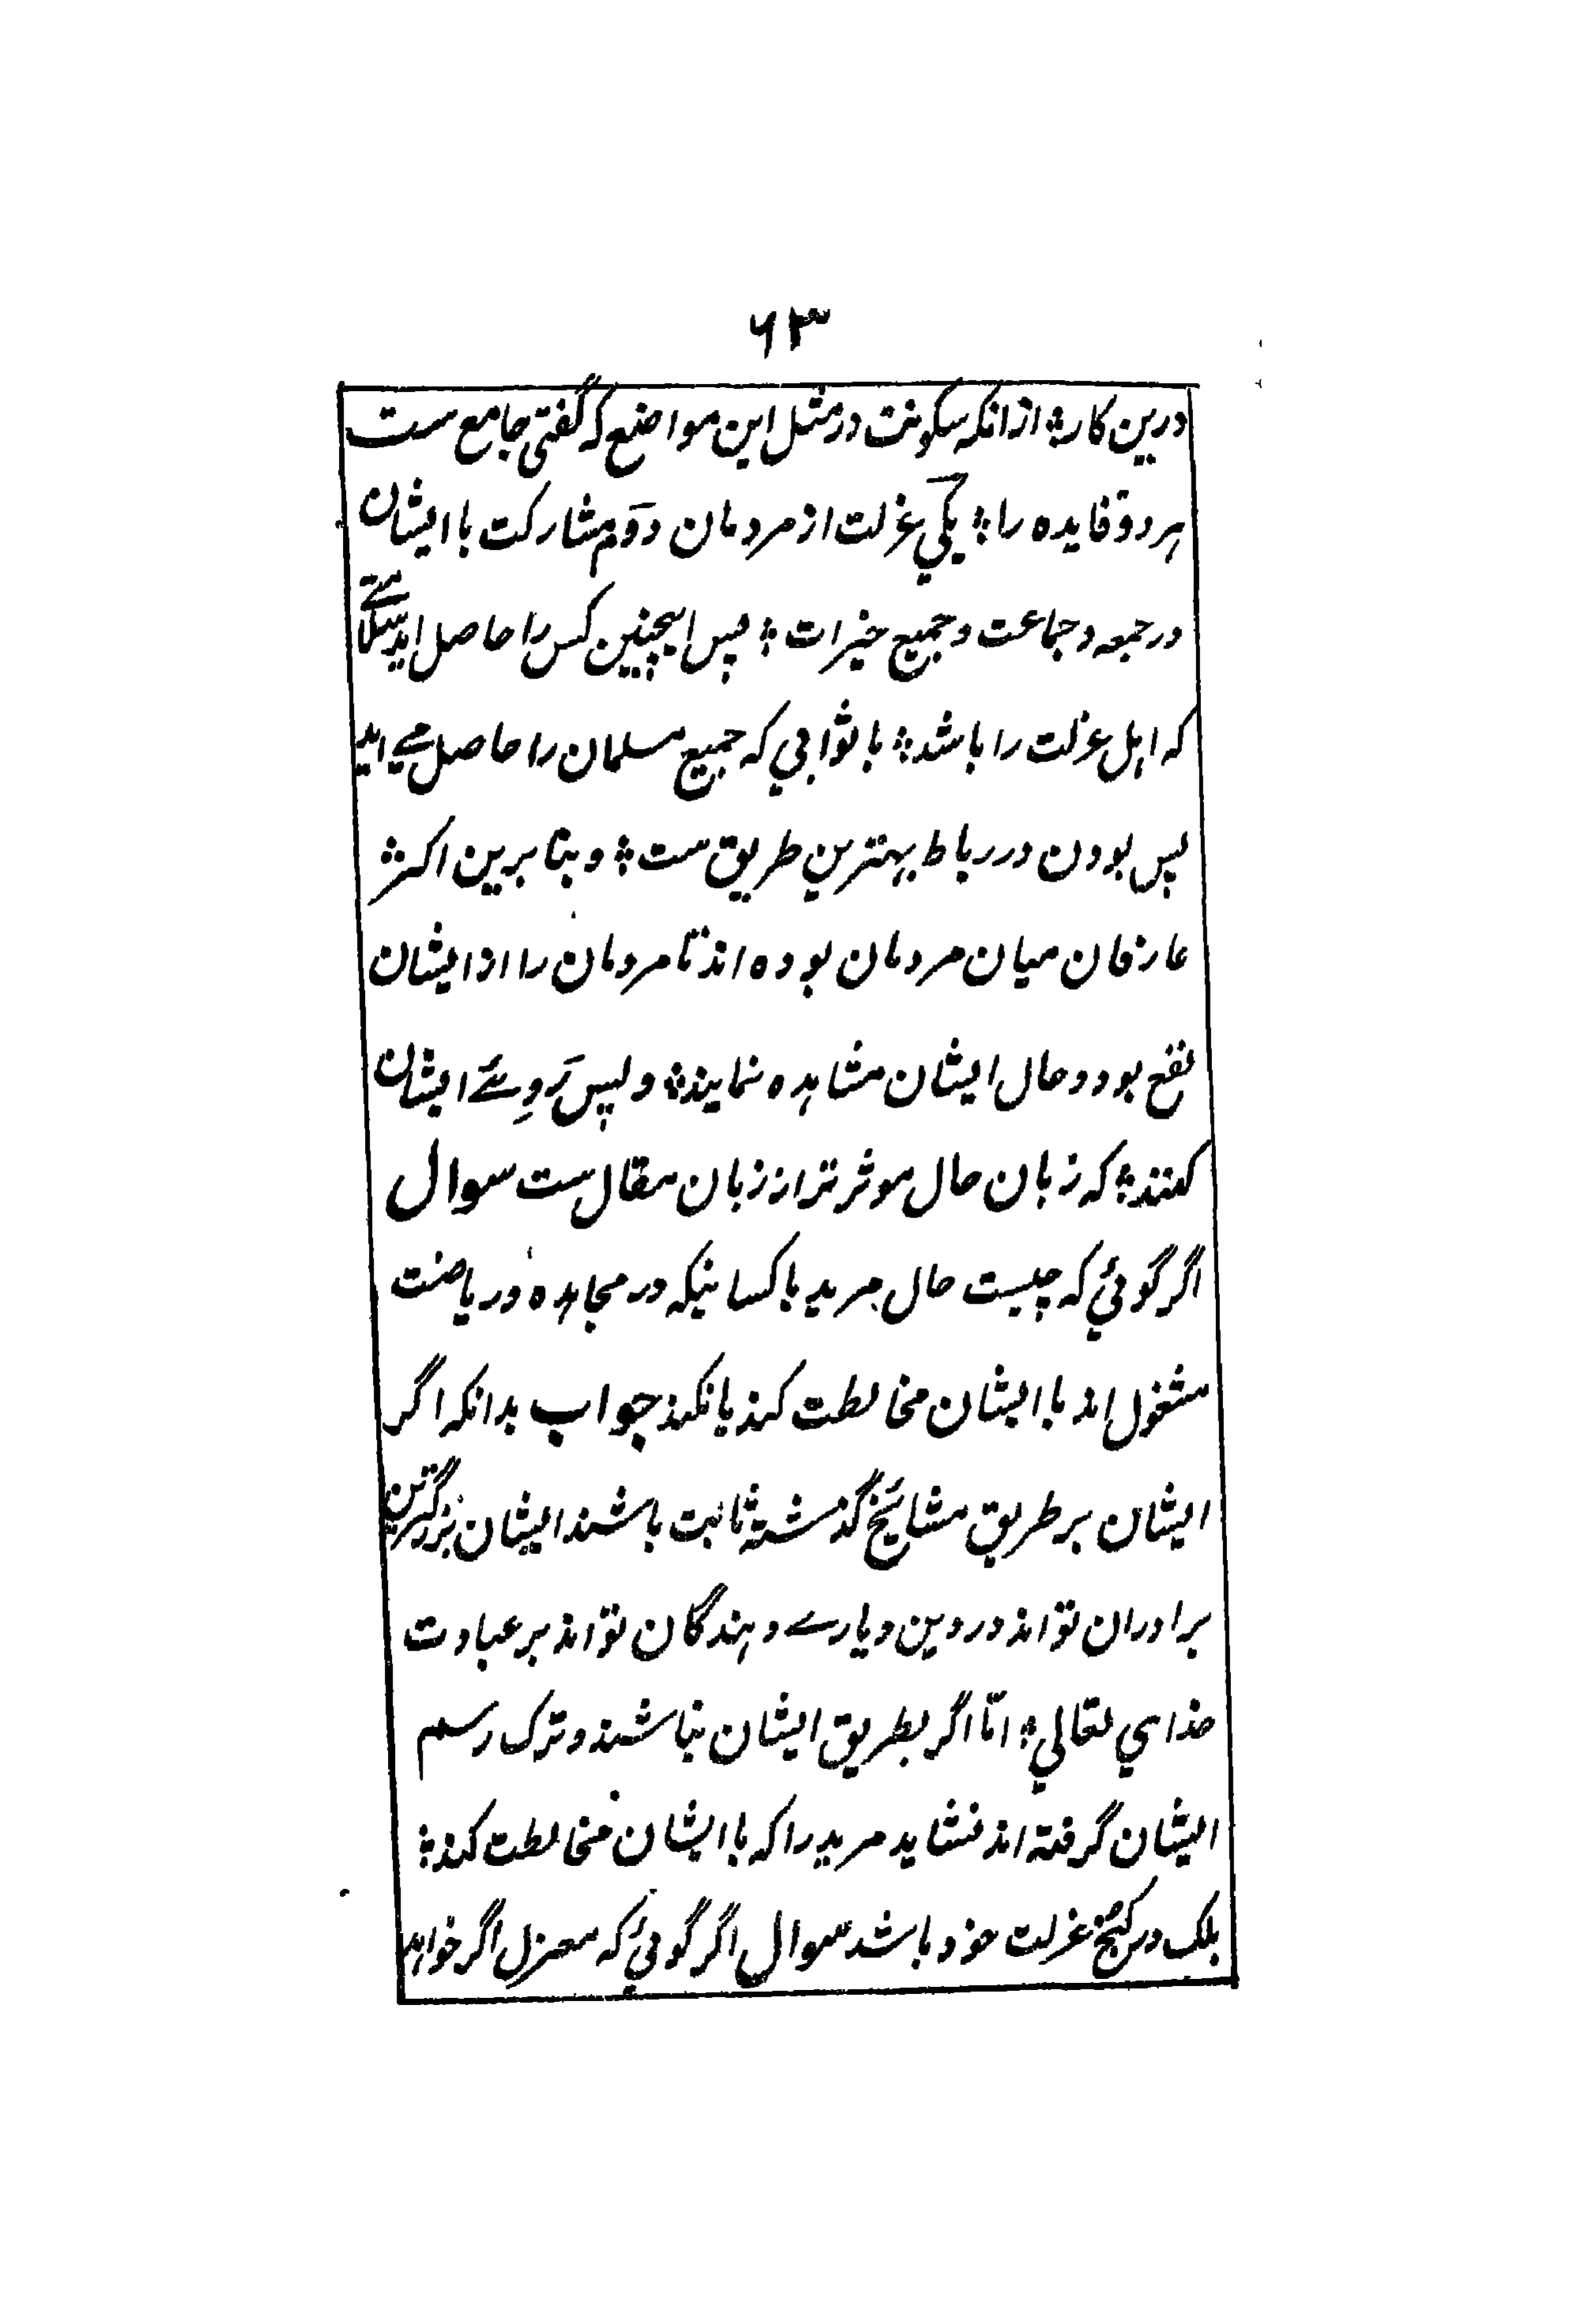 ۶۳
درین کار؛ ازانکه سکونت در مثل این مواضع که گفتی جامع ست
هر دو فایده را؛ یکی عزلت از مردمان دوم مشارکت با ایشان
در جمعه و جماعت و جمیع خیرات؛ پس اینچنین کس را حاصل اید سلامتے
که اهل عزلت را باشد؛ با ثوابي که جمیع مسلمان را حاصل مے اید
پس بودن در رباط بهترین طریق ست؛ و بنا برین اکثر؛
عارفان میان مردمان بوده اند تا مردمان را از ایشان
نفع بود و حال ایشان مشاهده نمایند؛ و پس رَوِئے ایشان
کنند؛ که زبان حال موثر تر از زبان مقال ست سوال
اگر گوئي که چیست حال مرید با کسانیکه در مجاهده و ریاضت
مشغول اند با ایشان مخالطت کند یا نکند جواب بدانکه اگر
ایشان بر طریق مشائخ گذشته ثابت باشند ایشان بزرگترین
برادران تو اند در دین و یارے دهندگان تو اند بر عبادت
خداي تعالي؛ امّا اگر بطریق ایشان نباشند و ترک رسم
ایشان گرفته اند نشاید مرید را که با ایشان مخالطت کند؛
بلک در کنج عزلت خود باشد سوال اگر گوئي که معتزل اگر خواهد